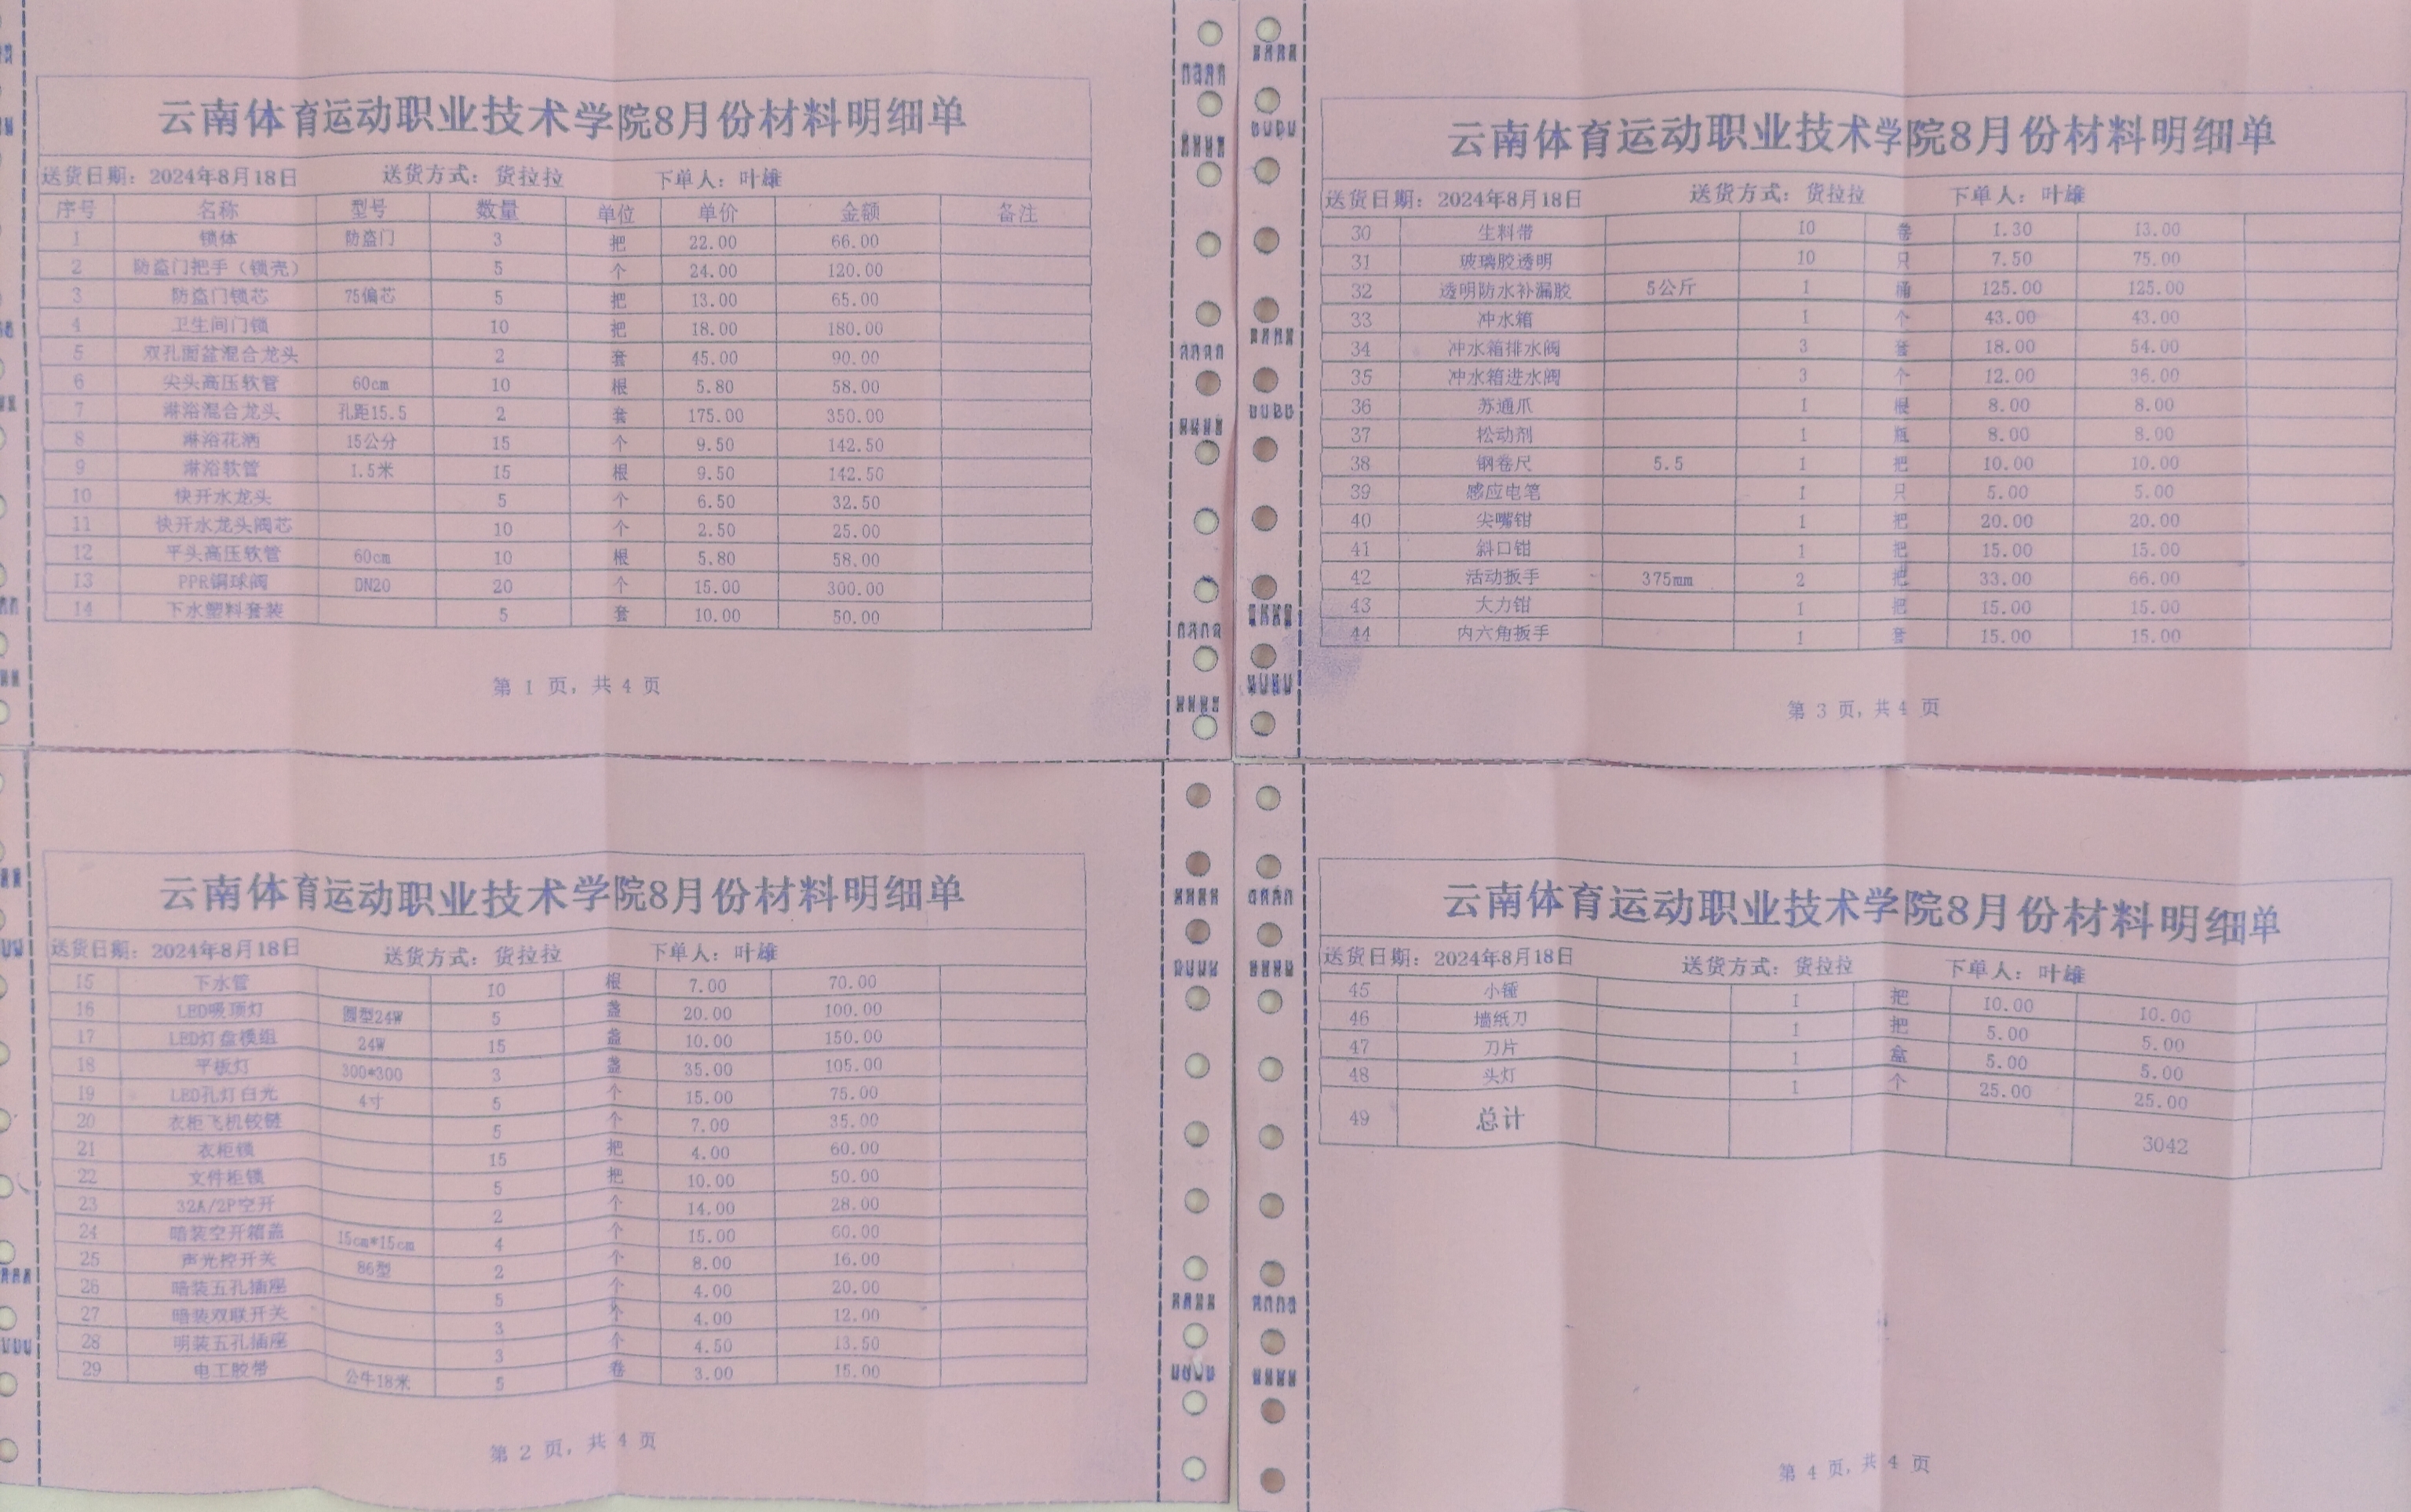 云南体育运动职业技术学院8月份材料明细单
送货日期：2024年8月18日 送货方式：货拉拉 下单人：叶雄
序号 名称 型号 数量 单位 单价 金额 备注
1 锁体 防盗门 3 把 22.00 66.00
2 防盗门把手（锁壳） 5 个 24.00 120.00
3 防盗门锁芯 75偏芯 5 把 13.00 65.00
4 卫生间门锁 10 把 18.00 180.00
5 双孔面盆混合龙头 2 套 45.00 90.00
6 尖头高压软管 60cm 10 根 5.80 58.00
7 淋浴混合龙头 孔距15.5 2 套 175.00 350.00
8 淋浴花洒 15公分 15 个 9.50 142.50
9 淋浴软管 1.5米 15 根 9.50 142.50
10 快开水龙头 5 个 6.50 32.50
11 快开水龙头阀芯 10 个 2.50 25.00
12 平头高压软管 60cm 10 根 5.80 58.00
13 PPR铜球阀 DN20 20 个 15.00 300.00
14 下水塑料套装 5 套 10.00 50.00
第 1 页，共 4 页
云南体育运动职业技术学院8月份材料明细单
送货日期：2024年8月18日 送货方式：货拉拉 下单人：叶雄
15 下水管 10 根 7.00 70.00
16 LED吸顶灯 圆型24W 5 盏 20.00 100.00
17 LED灯盘模组 24W 15 盏 10.00 150.00
18 平板灯 300*300 3 盏 35.00 105.00
19 LED孔灯白光 4寸 5 个 15.00 75.00
20 衣柜飞机铰链 5 个 7.00 35.00
21 衣柜锁 15 把 4.00 60.00
22 文件柜锁 5 把 10.00 50.00
23 32A/2P空开 2 个 14.00 28.00
24 暗装空开箱盖 15cm*15cm 4 个 15.00 60.00
25 声光控开关 86型 2 个 8.00 16.00
26 暗装五孔插座 5 个 4.00 20.00
27 暗装双联开关 3 个 4.00 12.00
28 明装五孔插座 3 个 4.50 13.50
29 电工胶带 公牛18米 5 卷 3.00 15.00
第 2 页，共 4 页
云南体育运动职业技术学院8月份材料明细单
送货日期：2024年8月18日 送货方式：货拉拉 下单人：叶雄
30 生料带 10 卷 1.30 13.00
31 玻璃胶透明 10 只 7.50 75.00
32 透明防水补漏胶 5公斤 1 桶 125.00 125.00
33 冲水箱 1 个 43.00 43.00
34 冲水箱排水阀 3 套 18.00 54.00
35 冲水箱进水阀 3 个 12.00 36.00
36 苏通爪 1 根 8.00 8.00
37 松动剂 1 瓶 8.00 8.00
38 钢卷尺 5.5 1 把 10.00 10.00
39 感应电笔 1 只 5.00 5.00
40 尖嘴钳 1 把 20.00 20.00
41 斜口钳 1 把 15.00 15.00
42 活动扳手 375mm 2 把 33.00 66.00
43 大力钳 1 把 15.00 15.00
44 内六角扳手 1 套 15.00 15.00
第 3 页，共 4 页
云南体育运动职业技术学院8月份材料明细单
送货日期：2024年8月18日 送货方式：货拉拉 下单人：叶雄
45 小锤 1 把 10.00 10.00
46 墙纸刀 1 把 5.00 5.00
47 刀片 1 盒 5.00 5.00
48 头灯 1 个 25.00 25.00
49 总计 3042
第 4 页，共 4 页